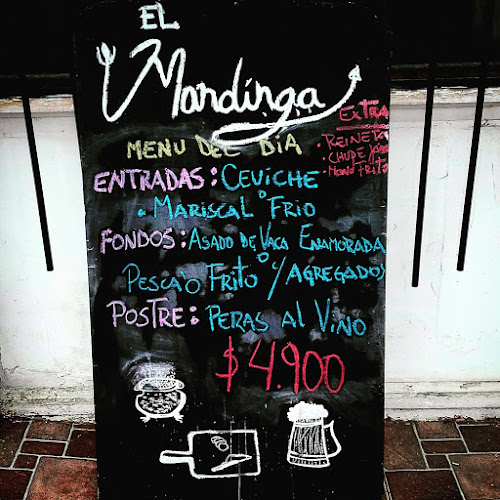 EL
Mandinga
EXTRA
• REINETA
• CHUPE
MENU DEL DIA
ENTRADAS: CEVICHE
• MARISCAL FRIO
FONDOS: ASADO DE VACA ENAMORADA
PESCAO FRITO C/AGREGADOS
POSTRE: PERAS AL VINO
$4.900